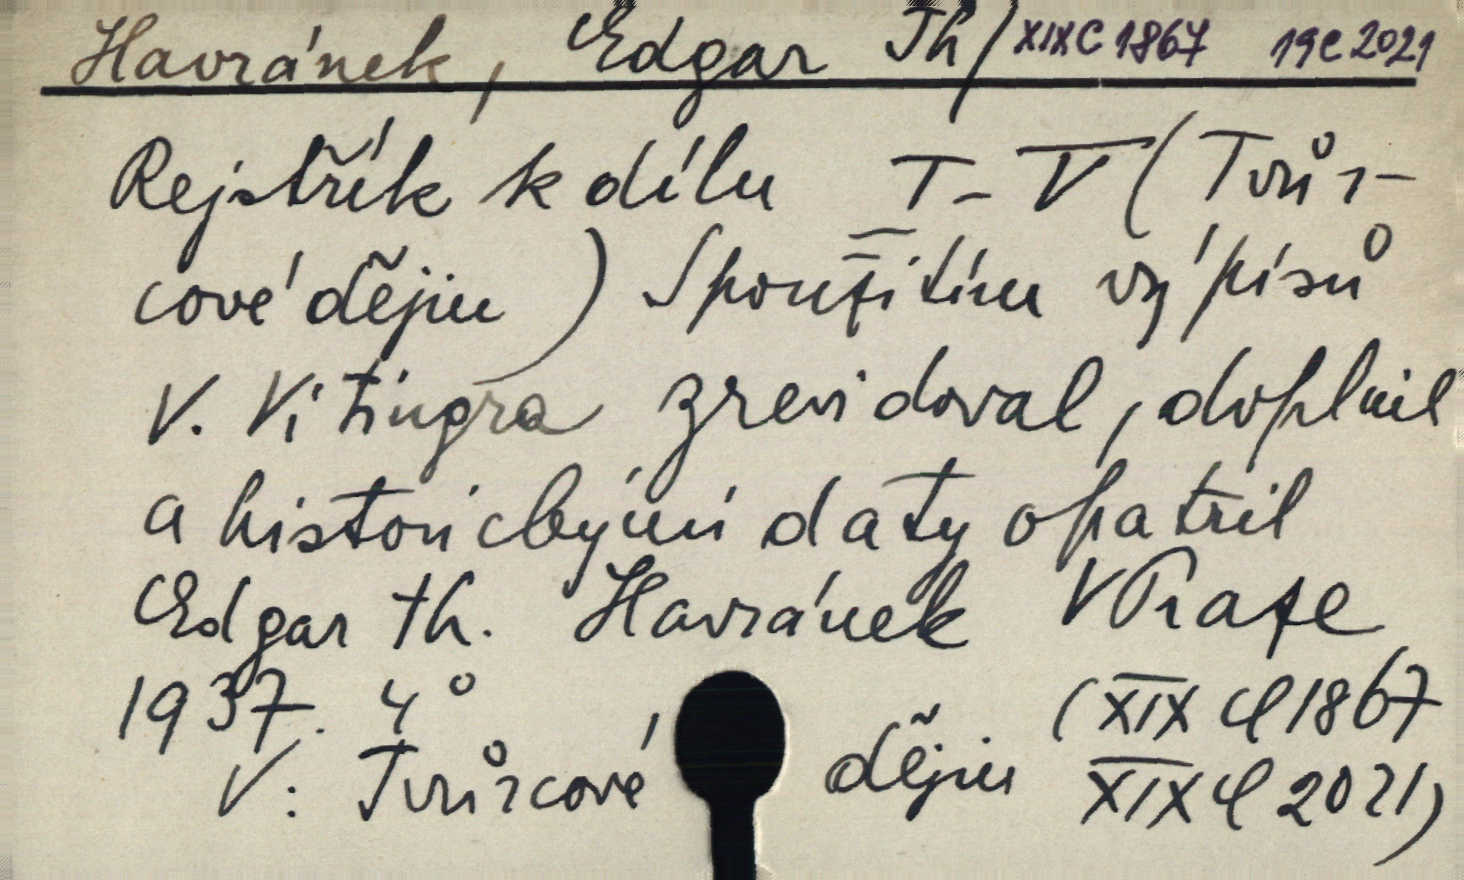 Havránek, Edgar Th/ XIX C 1867 19 C 2021
Rejstřík k dílu I-V (Tvůr-
cové dějin) S použitím výpisů
V. Vitingra zrevidoval, doplnil
a historickými daty opatřil
Edgar Th. Havránek V Praze
1937. 4° (XIX C 1867
V: Tvůrcové dějin XIX C 2021)